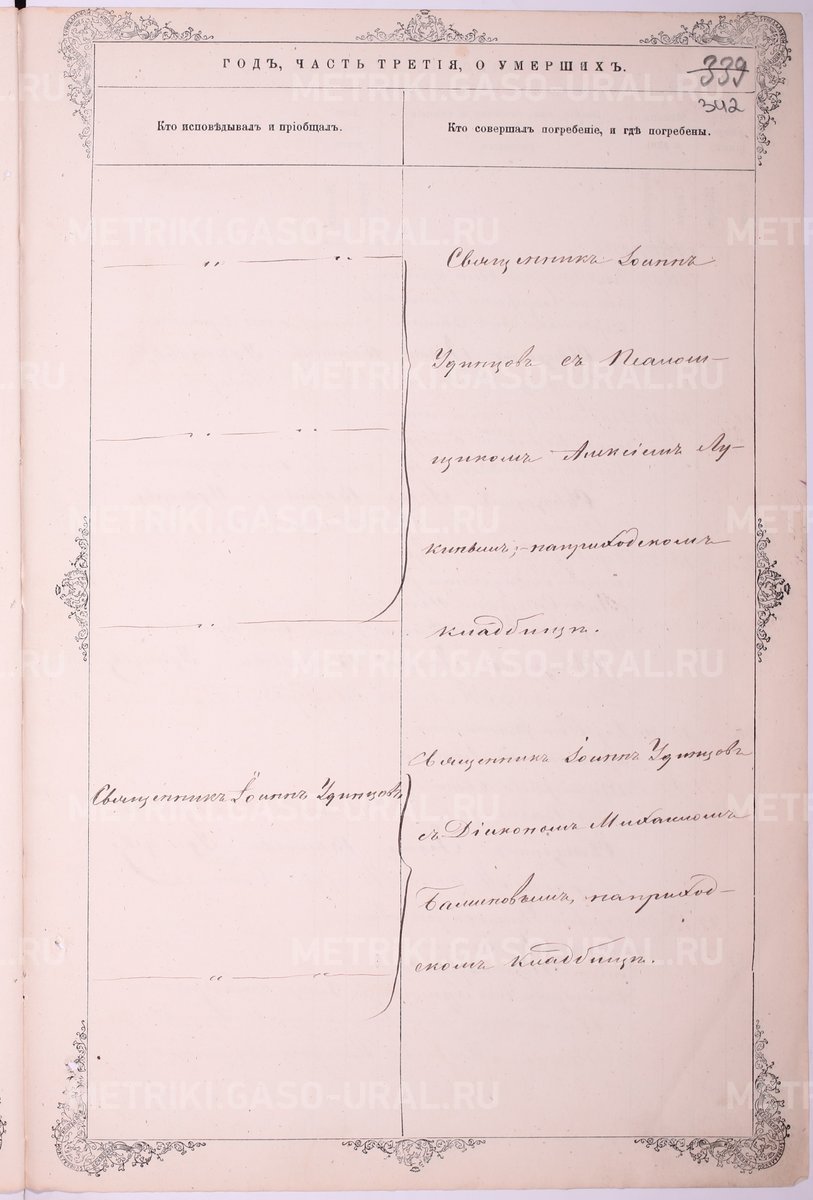 ГОДЪ, ЧАСТЬ ТРЕТІЯ, О УМЕРШИХЪ.
339
342
Кто исповѣдывалъ и пріобщалъ.
Кто совершалъ погребеніе, и гдѣ погребены.
Священникъ Іоаннъ
Удинцовъ съ Псалом-
щикомъ Алексіемъ Лу-
кинымъ, наприходскомъ
кладбищѣ.
Священникъ Іоаннъ Удинцовъ
Священникъ Іоаннъ Удинцовъ
съ Діакономъ Михаиломъ
наприход-
скомъ кладбищѣ.
METRIKI.GASO-URAL.RU